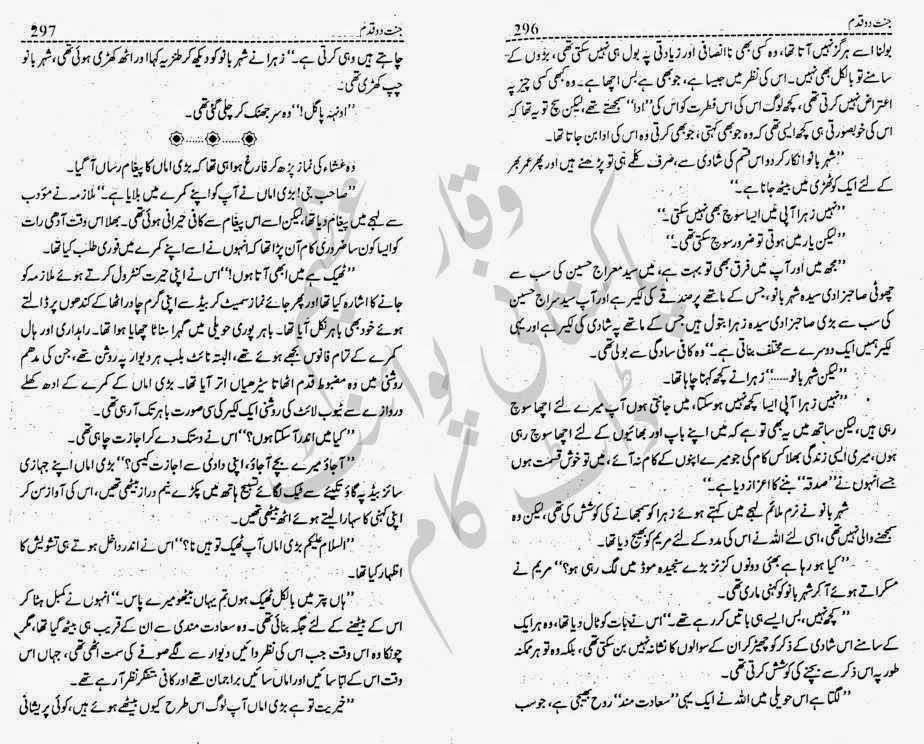 جنت دو قدم 296
بولنا اسے ہرگز نہیں آتا تھا، وہ کسی بھی ناانصافی اور زیادتی پہ بول ہی نہیں سکتی تھی، بڑوں کے
سامنے تو بالکل بھی نہیں۔ اس کی نظر میں جیسا ہے، جو بھی ہے بس اچھا ہے۔ وہ کبھی کسی چیز پہ
اعتراض نہیں کرتی تھی، کچھ لوگ اس کی اس فطرت کو اس کی ”ادا“ سمجھتے تھے، لیکن سچ تو یہ تھا کہ
اس کی خوبصورتی ہی کچھ ایسی تھی کہ وہ جو بھی کہتی، جو بھی کرتی وہ اس کی ادا بن جاتا تھا۔
”شہر بانو انکار کر دو اس قسم کی شادی سے، صرف کلمے ہی تو پڑھنے ہیں اور پھر عمر بھر
کے لئے ایک کوٹھڑی میں بیٹھ جانا ہے۔“
”نہیں زہرا آپی میں ایسا سوچ بھی نہیں سکتی۔“
”لیکن یار میں ہوتی تو ضرور سوچ سکتی تھی۔“
”مجھ میں اور آپ میں فرق بھی تو بہت ہے، میں سید معراج حسین کی سب سے
چھوٹی صاحبزادی سیدہ شہر بانو، جس کے ماتھے پر صدقے کی لکیر ہے اور آپ سید سراج حسین
کی سب سے بڑی صاحبزادی سیدہ زہرا بتول ہیں جس کے ماتھے پہ شادی کی لکیر ہے اور یہی
لکیر ہمیں ایک دوسرے سے مختلف بناتی ہے۔“ وہ کافی سادگی سے بولی تھی۔
”لیکن شہر بانو......“ زہرا نے کچھ کہنا چاہا تھا۔
”نہیں زہرا آپی ایسا کچھ نہیں ہو سکتا، میں جانتی ہوں آپ میرے لئے اچھا سوچ
رہی ہیں، لیکن ساتھ میں یہ بھی تو ہے کہ میں اپنے باپ اور بھائیوں کے لئے اچھا سوچ رہی
ہوں، میری ایسی زندگی بھلا کس کام کی جو میرے اپنوں کے کام نہ آئے، میں تو خوش قسمت ہوں
جسے انہوں نے ”صدقہ“ بننے کا اعزاز دیا ہے۔“
شہر بانو نے نرم ملائم لہجے میں کہتے ہوئے زہرا کو سمجھانے کی کوشش کی تھی، لیکن وہ
سمجھنے والی نہیں تھی، اسی لئے اللہ نے اس کی مدد کے لئے مریم کو بھیج دیا تھا۔
”کیا ہو رہا ہے بھئی دونوں کزنز بڑے سنجیدہ موڈ میں لگ رہی ہو؟“ مریم نے
مسکراتے ہوئے آ کر شہر بانو کو کہنی ماری تھی۔
”کچھ نہیں، بس ایسے ہی باتیں کر رہے تھے۔“ اس نے بات کو ٹال دیا تھا، وہ ہر ایک
کے سامنے اس شادی کے ذکر کو چھیڑ کر ان کے سوالوں کا نشانہ نہیں بن سکتی تھی، بلکہ وہ تو ہر ممکنہ
طور پہ اس ذکر سے بچنے کی کوشش کرتی تھی۔
”لگتا ہے اس حویلی میں اللہ نے ایک یہی ”سعادت مند“ روح بھیجی ہے، جو سب
جنت دو قدم 297
چاہتے ہیں وہی کرتی ہے۔“ زہرا نے شہر بانو کو دیکھ کر طنزیہ کہا اور اٹھ کھڑی ہوئی تھی، شہر بانو
چپ کھڑی تھی۔
”اونہہ پاگل!“ وہ سر جھٹک کر چلی گئی تھی۔
وہ عشاء کی نماز پڑھ کر فارغ ہوا ہی تھا کہ بڑی اماں کا پیغام رساں آ گیا۔
”صاحب جی! بڑی اماں نے آپ کو اپنے کمرے میں بلایا ہے۔“ ملازمہ نے مؤدب
سے لہجے میں پیغام دیا تھا، لیکن اسے اس پیغام سے کافی حیرانی ہوئی تھی۔ بھلا اس وقت آدھی رات
کو ایسا کون سا ضروری کام آن پڑا تھا کہ انہوں نے اسے اپنے کمرے میں فوری طلب کیا تھا۔
”ٹھیک ہے میں ابھی آتا ہوں!“ اس نے اپنی حیرت کنٹرول کرتے ہوئے ملازمہ کو
جانے کا اشارہ کیا تھا اور پھر جائے نماز سمیٹ کر بیڈ سے اپنی گرم چادر اٹھا کے کندھوں پر ڈالتے
ہوئے خود بھی باہر نکل آیا تھا۔ باہر پوری حویلی میں گہرا سناٹا چھایا ہوا تھا۔ راہداری اور ہال
کمرے کے تمام فانوس بجھے ہوئے تھے، البتہ نائٹ بلب ہر دیوار پہ روشن تھے، جن کی مدھم
روشنی میں وہ مضبوط قدم اٹھاتا سیڑھیاں اتر آیا تھا۔ بڑی اماں کے کمرے کے ادھ کھلے
دروازے سے ٹیوب لائٹ کی روشنی ایک لکیر کی سی صورت باہر تک آ رہی تھی۔
”کیا میں اندر آ سکتا ہوں؟“ اس نے دستک دے کر اجازت چاہی تھی۔
”آ جاؤ میرے بچے آ جاؤ، اپنی دادی سے اجازت کیسی؟“ بڑی اماں اپنے جہازی
سائز بیڈ پہ گاؤ تکیئے سے ٹیک لگائے تسبیح ہاتھ میں پکڑے نیم دراز بیٹھی تھیں، اس کی آواز سن کر
اپنی کہنی کا سہارا لیتے ہوئے اٹھ بیٹھی تھیں۔
”السلام علیکم بڑی اماں آپ ٹھیک تو ہیں نا؟“ اس نے اندر داخل ہوتے ہی تشویش کا
اظہار کیا تھا۔
”ہاں پتر میں بالکل ٹھیک ہوں تم یہاں بیٹھو میرے پاس۔“ انہوں نے کمبل ہٹا کر
اس کے بیٹھنے کے لئے جگہ بنائی تھی۔ وہ سعادت مندی سے ان کے قریب ہی بیٹھ گیا تھا، مگر
چونکا وہ اس وقت جب اس کی نظر دائیں دیوار سے لگے صوفے کی سمت اٹھی تھی، جہاں اس
وقت اس کے ابا سائیں اور اماں سائیں براجمان تھے اور کافی متفکر نظر آ رہے تھے۔
”خیریت تو ہے بڑی اماں آپ لوگ اس طرح کیوں بیٹھے ہوئے ہیں، کوئی پریشانی
وقار عظیم
پاکستانی پوائنٹ
ڈاٹ کام